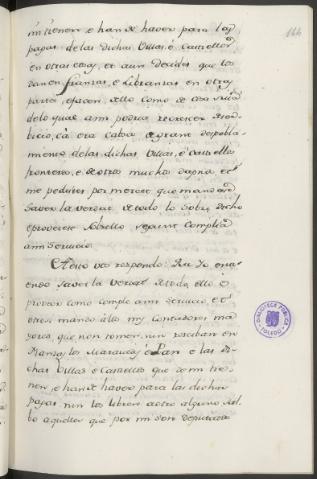 mi tienen, e han de haver para las
pagas de las dichas Villas, e Castellos
en otras cosas, et aun decides que los
dan en fianzas, e Libranzas en otras
partes, e facen dello como de cosa suia
de lo qual a mi podria recrecer
, ca era causa de grant despobla-
miento de las dichas Villas, e Castellos
fronteros, e de otros muchos dapnos, et
me pedistes por merced que mandase
saver la verdat de todo lo sobre dicho
e proveiese sobrello segunt complia
a mi Servicio.
A esto vos respondo: Que Yo en-
tiendo saver la verdat de todo ello, e
proveer como comple a mi Servicio, e
otrosi mando a los mis Contadores ma-
yores que non tomen, nin resciban en
fianza los Maravedis, e Pan e las di-
chas Villas e Castellos que de mi tie-
nen, e han de haver para las dichas
pagas nin los libren a otro alguno sal-
bo aquellos que por mi son deputados
166
BIBLIOTECA PÚBLICA
TOLEDO